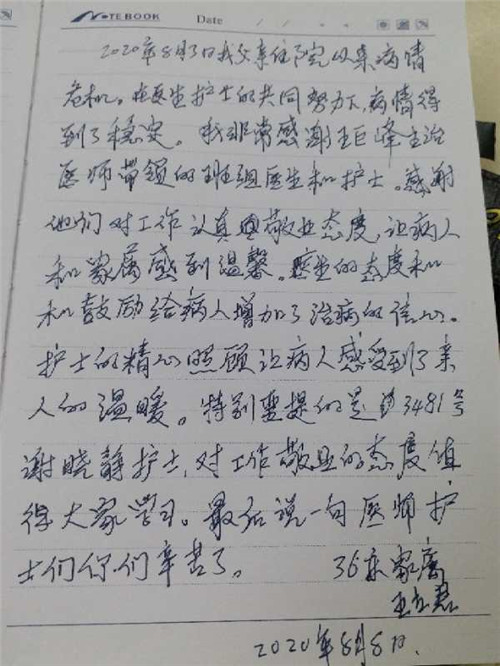 NOTE BOOK Date
2020年8月3日我父亲住院以来病情
危机。在医生护士的共同努力下,病情得
到了稳定。我非常感谢王巨峰主治
医师带领的班组医生和护士。感谢
他们对工作认真与敬业态度,让病人
和家属感到温馨。医生的态度和
和鼓励给病人增加了治病的信心。
护士的精心照顾让病人感受到了亲
人的温暖。特别要提的是 3481号
谢晓静护士,对工作敬业的态度值
得大家学习。最后说一句医师护
士们你们辛苦了。 36床家属
2020年8月8日